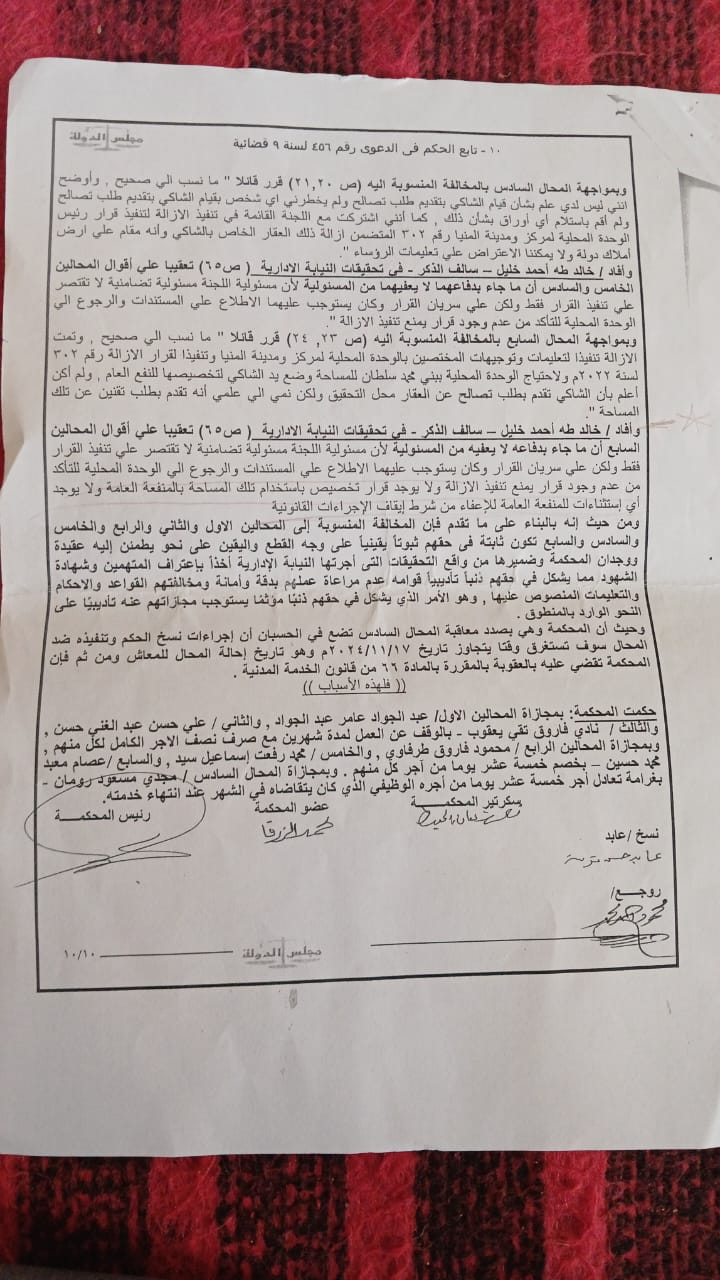 مجلس الدولة
١٠- تابع الحكم فى الدعوى رقم ٤٥٦ لسنة ٩ قضائية
وبمواجهة المحال السادس بالمخالفة المنسوبة اليه (ص ٢١,٢٠) قرر قائلا " ما نسب الي صحيح , وأوضح
انني ليس لدي علم بشأن قيام الشاكي بتقديم طلب تصالح ولم يخطرني اي شخص بقيام الشاكي بتقديم طلب تصالح
ولم أقم باستلام أي أوراق بشأن ذلك , كما أنني اشتركت مع اللجنة القائمة في تنفيذ الازالة لتنفيذ قرار رئيس
الوحدة المحلية لمركز ومدينة المنيا رقم ٣٠٢ المتضمن ازالة ذلك العقار الخاص بالشاكي وأنه مقام علي ارض
أملاك دولة ولا يمكننا الاعتراض علي تعليمات الرؤساء ".
وأفاد / خالد طه أحمد خليل – سالف الذكر - في تحقيقات النيابة الادارية ( ص٦٥) تعقيبا علي أقوال المحالين
الخامس والسادس أن ما جاء بدفاعهما لا يعفيهما من المسئولية لأن مسئولية اللجنة مسئولية تضامنية لا تقتصر
علي تنفيذ القرار فقط ولكن علي سريان القرار وكان يستوجب عليهما الاطلاع علي المستندات والرجوع الي
الوحدة المحلية للتأكد من عدم وجود قرار يمنع تنفيذ الازالة ."
وبمواجهة المحال السابع بالمخالفة المنسوبة اليه (ص ٢٣, ٢٤) قرر قائلا " ما نسب الي صحيح , وتمت
الازالة تنفيذا لتعليمات وتوجيهات المختصين بالوحدة المحلية لمركز ومدينة المنيا وتنفيذا لقرار الازالة رقم ٣٠٢
لسنة ٢٠٢٢م ولاحتياج الوحدة المحلية ببني محمد سلطان للمساحة وضع يد الشاكي لتخصيصها للنفع العام , ولم أكن
أعلم بأن الشاكي تقدم بطلب تصالح عن العقار محل التحقيق ولكن نمي الي علمي أنه تقدم بطلب تقنين عن تلك
المساحة ".
وأفاد / خالد طه أحمد خليل – سالف الذكر - في تحقيقات النيابة الادارية ( ص٦٥) تعقيبا علي أقوال المحالين
السابع أن ما جاء بدفاعه لا يعفيه من المسئولية لأن مسئولية اللجنة مسئولية تضامنية لا تقتصر علي تنفيذ القرار
فقط ولكن علي سريان القرار وكان يستوجب عليهما الاطلاع علي المستندات والرجوع الي الوحدة المحلية للتأكد
من عدم وجود قرار يمنع تنفيذ الازالة ولا يوجد قرار تخصيص باستخدام تلك المساحة بالمنفعة العامة ولا يوجد
أي إستثناءات للمنفعة العامة للإعفاء من شرط إيقاف الإجراءات القانونية
ومن حيث إنه بالبناء على ما تقدم فإن المخالفة المنسوبة إلى المحالين الاول والثاني والرابع والخامس
والسادس والسابع تكون ثابتة في حقهم ثبوتاً يقينياً على وجه القطع واليقين على نحو يطمئن إليه عقيدة
ووجدان المحكمة وضميرها من واقع التحقيقات التى أجرتها النيابة الإدارية أخذاً بإعتراف المتهمين وشهادة
الشهود مما يشكل في حقهم ذنباً تأديبياً قوامه عدم مراعاة عملهم بدقة وأمانة ومخالفتهم القواعد والاحكام
والتعليمات المنصوص عليها , وهو الأمر الذي يشكل في حقهم ذنبًا مؤثمًا يستوجب مجازاتهم عنه تأديبيًا على
النحو الوارد بالمنطوق .
وحيث أن المحكمة وهي بصدد معاقبة المحال السادس تضع في الحسبان أن إجراءات نسخ الحكم وتنفيذه ضد
المحال سوف تستغرق وقتا يتجاوز تاريخ ٢٠٢٤/١١/١٧م وهو تاريخ إحالة المحال للمعاش ومن ثم فإن
المحكمة تقضي عليه بالعقوبة بالمقررة بالمادة ٦٦ من قانون الخدمة المدنية .
(( فلهذه الأسباب ))
حكمت المحكمة: بمجازاة المحالين الاول/ عبد الجواد عامر عبد الجواد , والثاني / علي حسن عبد الغني حسن ,
والثالث / نادي فاروق تقي يعقوب - بالوقف عن العمل لمدة شهرين مع صرف نصف الاجر الكامل لكل منهم ,
وبمجازاة المحالين الرابع / محمود فاروق طرفاوي , والخامس / محمد رفعت إسماعيل سيد , والسابع /عصام معبد
محمد حسين – بخصم خمسة عشر يوما من أجر كل منهم . وبمجازاة المحال السادس / مجدي مسعود رومان -
بغرامة تعادل أجر خمسة عشر يوما من أجره الوظيفي الذي كان يتقاضاه في الشهر عند انتهاء خدمته.
سكرتير المحكمة
عضو المحكمة
رئيس المحكمة
نسخ / عابد
روجع/
مجلس الدولة
١٠/١٠